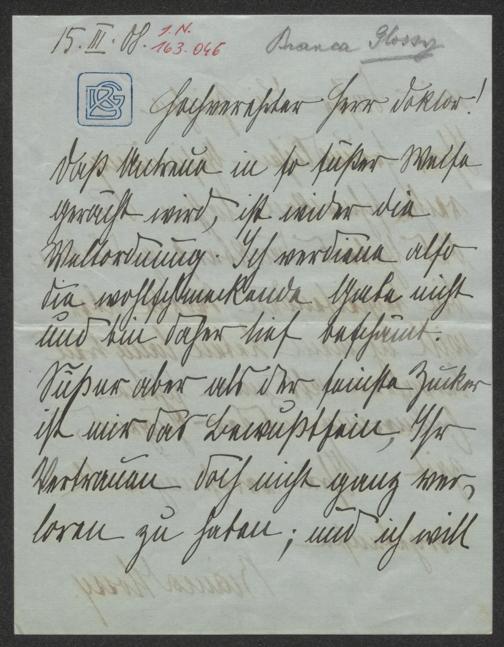 15. III. 08.
I.N.
163.046
Branca Glossy
Hochverehrter Herr Doktor!
Daß Untreue in so süßer Weise
gerächt wird, ist wider die
Weltordnung. Ich verdiene also
die wohlschmeckende Gabe nicht
und bin daher tief beschämt.
Süßer aber als der feinste Zucker
ist mir das Bewußtsein, Ihr
Vertrauen doch nicht ganz ver-
loren zu haben; und ich will